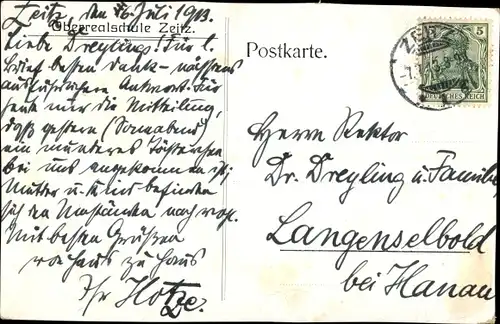 Zeitz, den 6. Juli 1913.
Oberrealschule Zeitz.
Liebe Dreylings! Für l.
Brief besten Dank – nächstens
ausführlichere Antwort. Für
heute nur die Mitteilung,
daß gestern (Sonnabend)
ein munteres Töchterchen
bei uns angekommen ist;
Mutter u. Kind befinden
sich den Umständen nach wohl.
Mit besten Grüßen
von Haus zu Haus
Ihr Hotze.
Postkarte.
ZEITZ
5
DEUTSCHES REICH
Herrn Rektor
Dr. Dreyling u. Familie
Langenselbold
bei Hanau